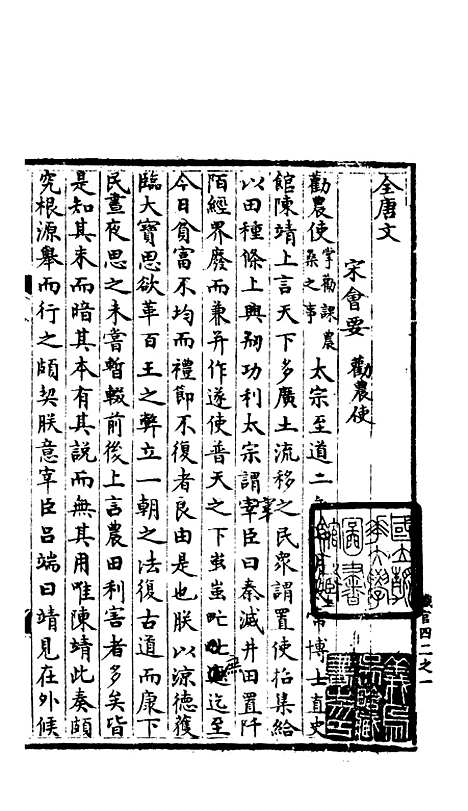 全唐文
宋會要　勸農使
勸農使掌勸課農桑之事太宗至道二年　常博士直史
館陳靖上言天下多廣土流移之民衆謂置使招集給
以田種條上興利功利太宗謂宰臣曰秦滅井田置阡
陌經界廢而兼并作遂使普天之下蚩蚩　迄至
今日貧富不均而禮節不復者良由是也朕以涼德獲
臨大寶思欲革百王之弊立一朝之法復古道而康下
民晝夜思之未嘗暫輟前後上言農田利害者多矣皆
是知其末而暗其本有其説而無其用唯陳靖此奏頗
究根源舉而行之頗契朕意宰臣吕端曰靖見在外候
職官四二之一